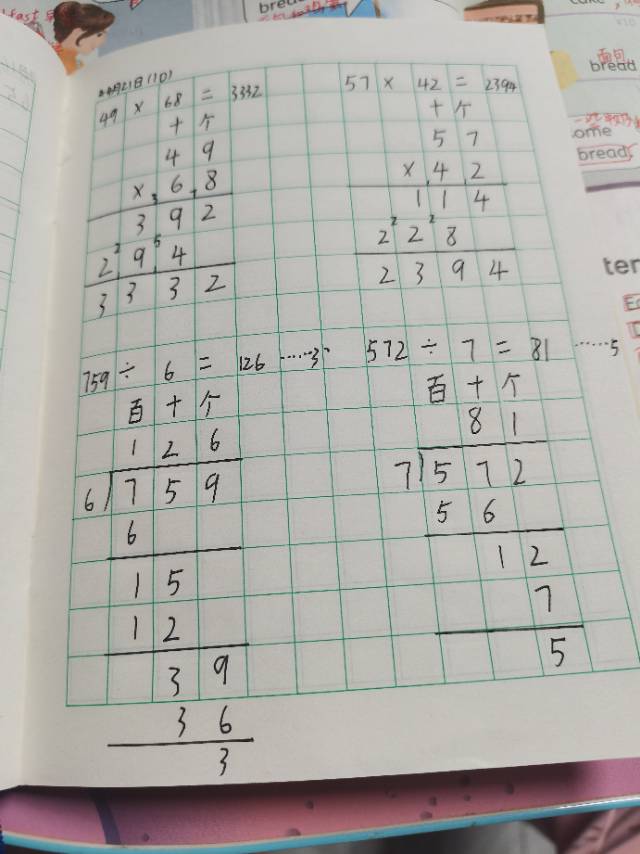 4月21日(10)
49 × 68 = 3332
十 个
4 9
× 6 8
3 9 2
2 9 4
3 3 3 2
57 × 42 = 2394
十 个
5 7
× 4 2
1 1 4
2 2 8
2 3 9 4
759 ÷ 6 = 126 ······3
百 十 个
1 2 6
6 7 5 9
6
1 5
1 2
3 9
3 6
3
572 ÷ 7 = 81 ······5
百 十 个
8 1
7 5 7 2
5 6
1 2
7
5
面包
bread
ome
bread
ter